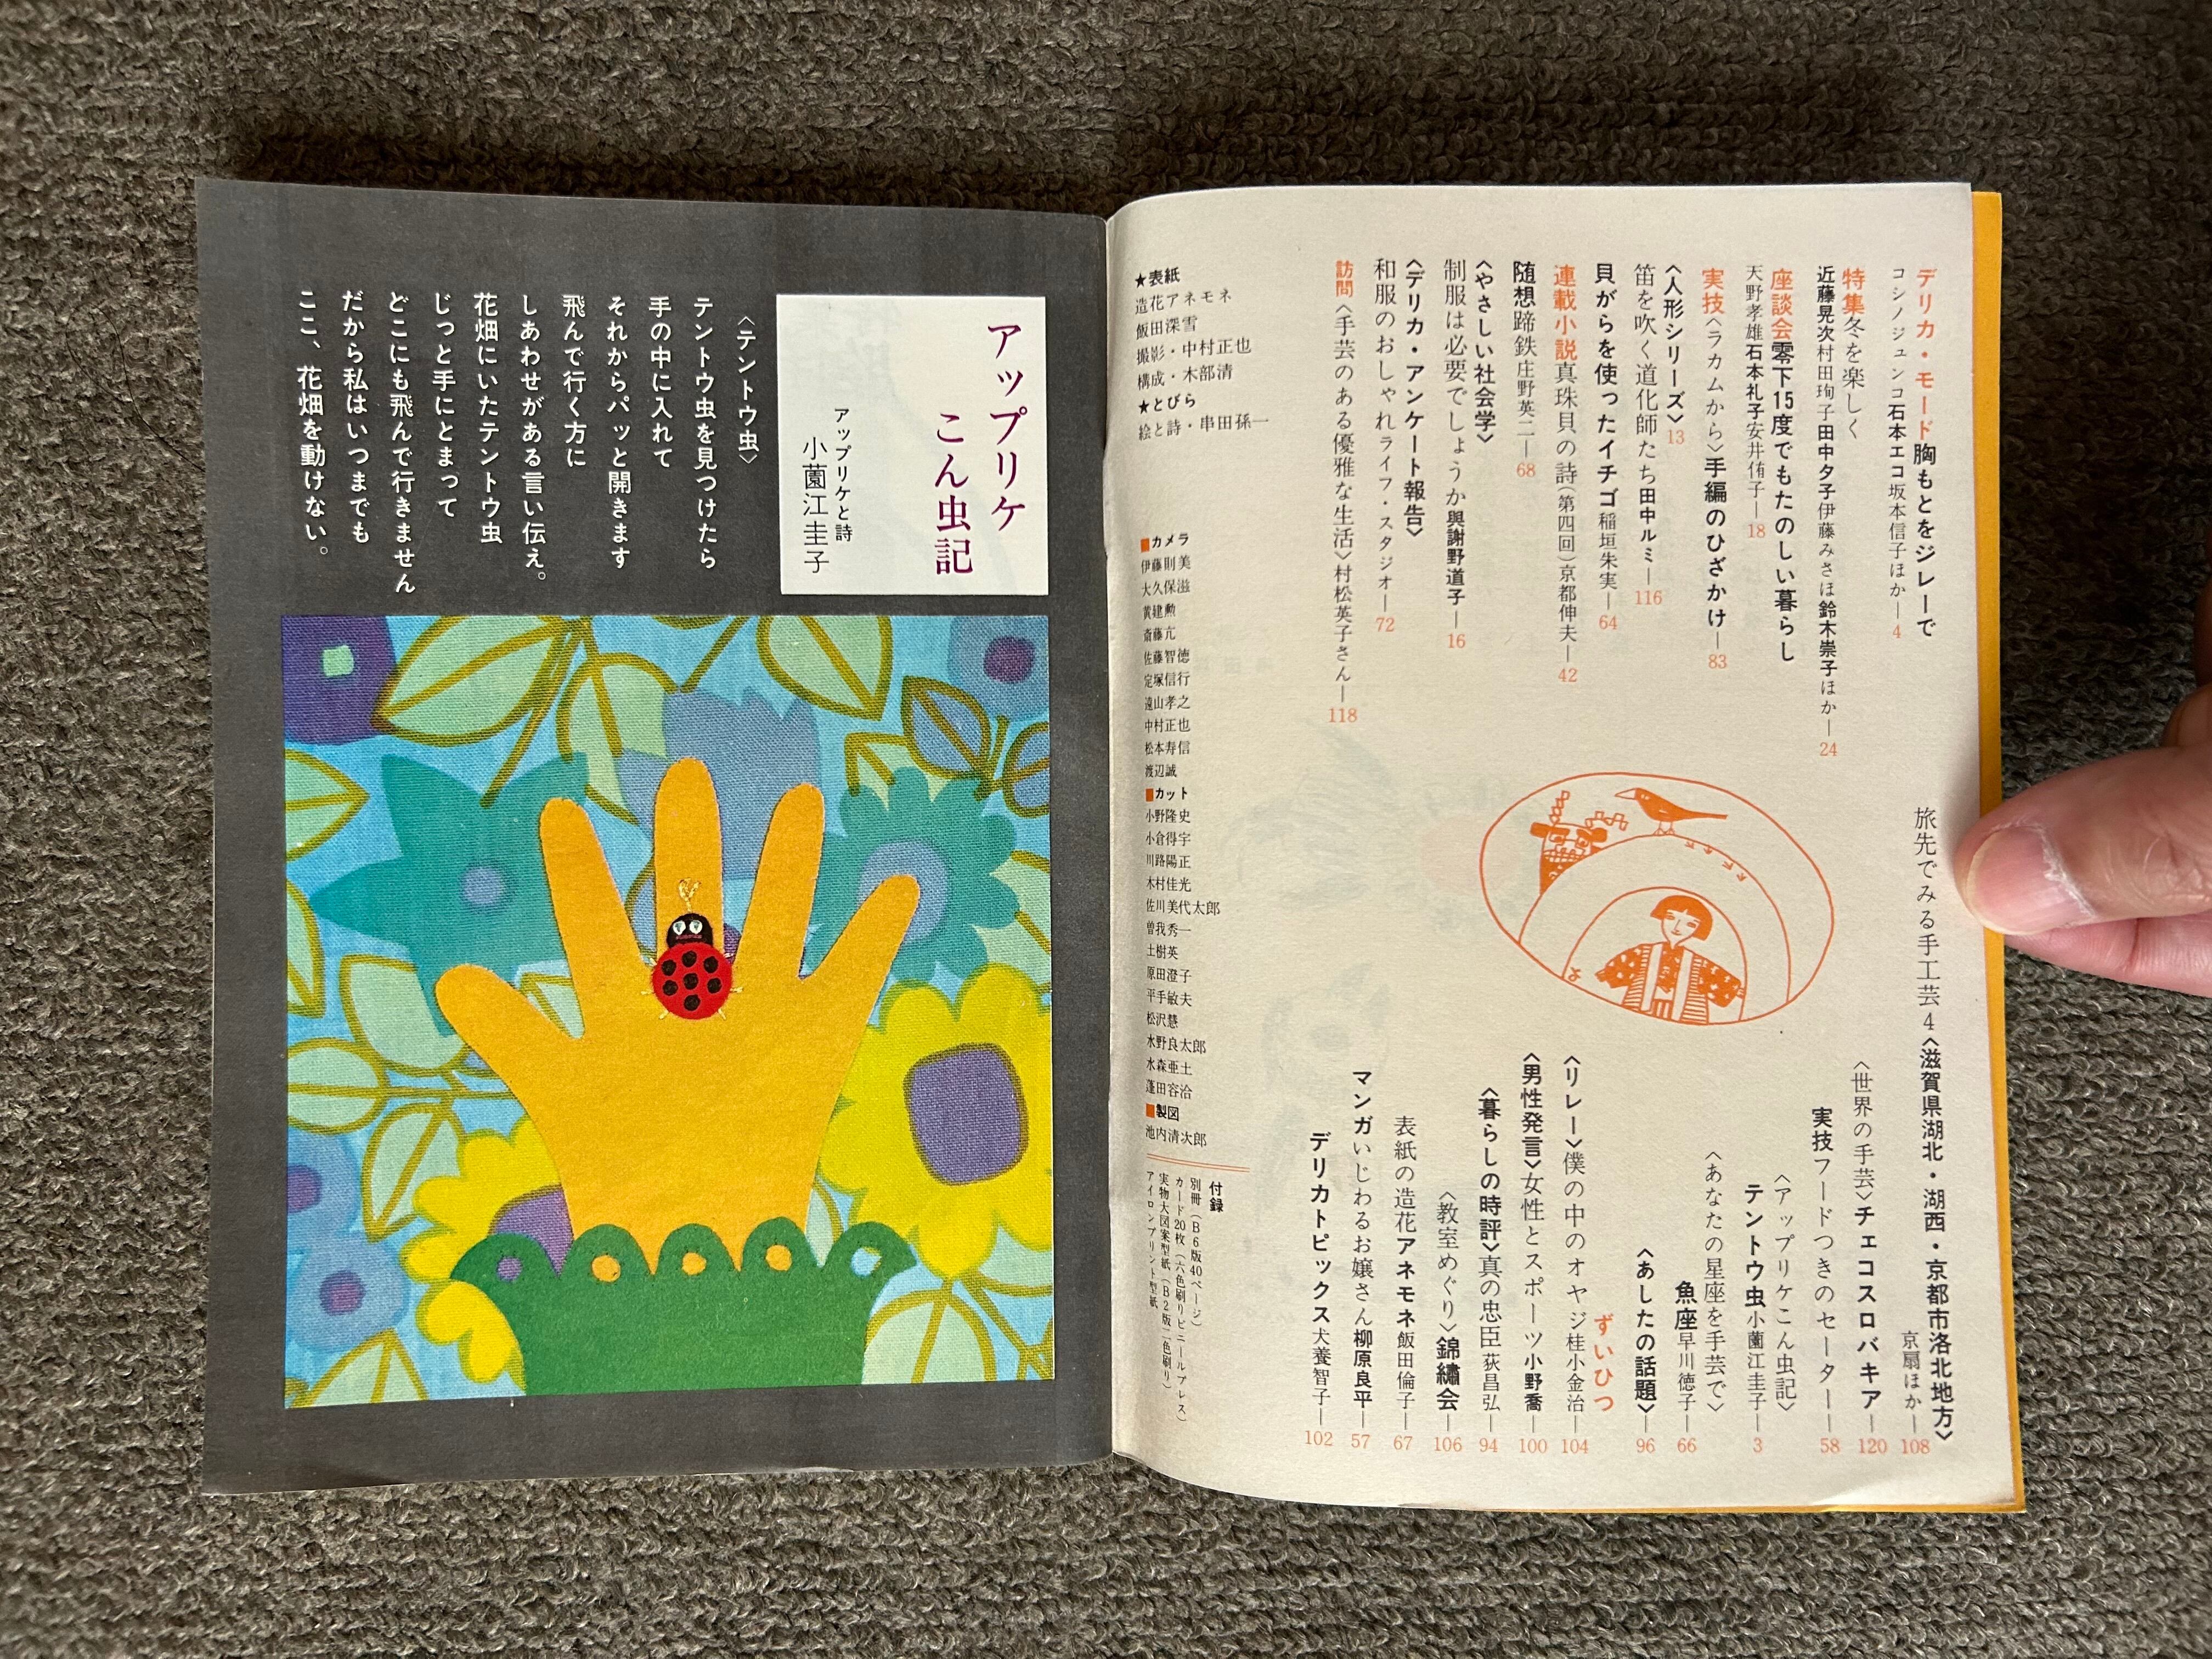 アップリケ
こん虫記
アップリケと詩
小薗江圭子
〈テントウ虫〉
テントウ虫を見つけたら
手の中に入れて
それからパッと開きます
飛んで行く方に
しあわせがある言い伝え。
花畑にいたテントウ虫
じっと手にとまって
どこにも飛んで行きません
だから私はいつまでも
ここ、花畑を動けない。
デリカ・モード胸もとをジレーで
コシノジュンコ石本エコ坂本信子ほか—4
特集冬を楽しく
近藤晃次村田珣子田中夕子伊藤みさほ鈴木崇子ほか—24
座談会零下15度でもたのしい暮らし
天野孝雄石本礼子安井侑子—18
実技〈ラカムから〉手編のひざかけ—83
〈人形シリーズ〉13
笛を吹く道化師たち田中ルミ—116
貝がらを使ったイチゴ稲垣朱実—64
連載小説真珠貝の詩(第四回)京都伸夫—42
随想蹄鉄庄野英二—68
〈やさしい社会学〉
制服は必要でしょうか與謝野道子—16
〈デリカ・アンケート報告〉
和服のおしゃれライフ・スタジオ—72
訪問〈手芸のある優雅な生活〉村松英子さん—118
旅先でみる手工芸4〈滋賀県湖北・湖西・京都市洛北地方〉
京扇ほか—108
〈世界の手芸〉チェコスロバキア—120
実技フードつきのセーター—58
〈アップリケこん虫記〉
テントウ虫小薗江圭子—3
〈あなたの星座を手芸で〉
魚座早川徳子—66
〈あしたの話題〉—96
ずいひつ
〈リレー〉僕の中のオヤジ桂小金治—104
〈男性発言〉女性とスポーツ小野喬—100
〈暮らしの時評〉真の忠臣荻昌弘—94
〈教室めぐり〉錦繡会—106
表紙の造花アネモネ飯田倫子—67
マンガいじわるお嬢さん柳原良平—57
デリカトピックス犬養智子—102
★表紙
造花アネモネ
飯田深雪
撮影・中村正也
構成・木部清
★とびら
絵と詩・串田孫一
■カメラ
伊藤則美
大久保滋
黄建勲
斎藤亢
佐藤智徳
定塚信行
遠山孝之
中村正也
松本寿信
渡辺誠
■カット
小野隆史
小倉得宇
川路陽正
木村佳光
佐川美代太郎
曽我秀一
土樹英
原田澄子
平手敏夫
松沢慧
水野良太郎
水森亜土
蓬田容治
■製図
池内清次郎
付録
別冊(B6版40ページ)
カード20枚(六色刷りビニールプレス)
実物大図案型紙(B2版二色刷り)
アイロンプリント型紙